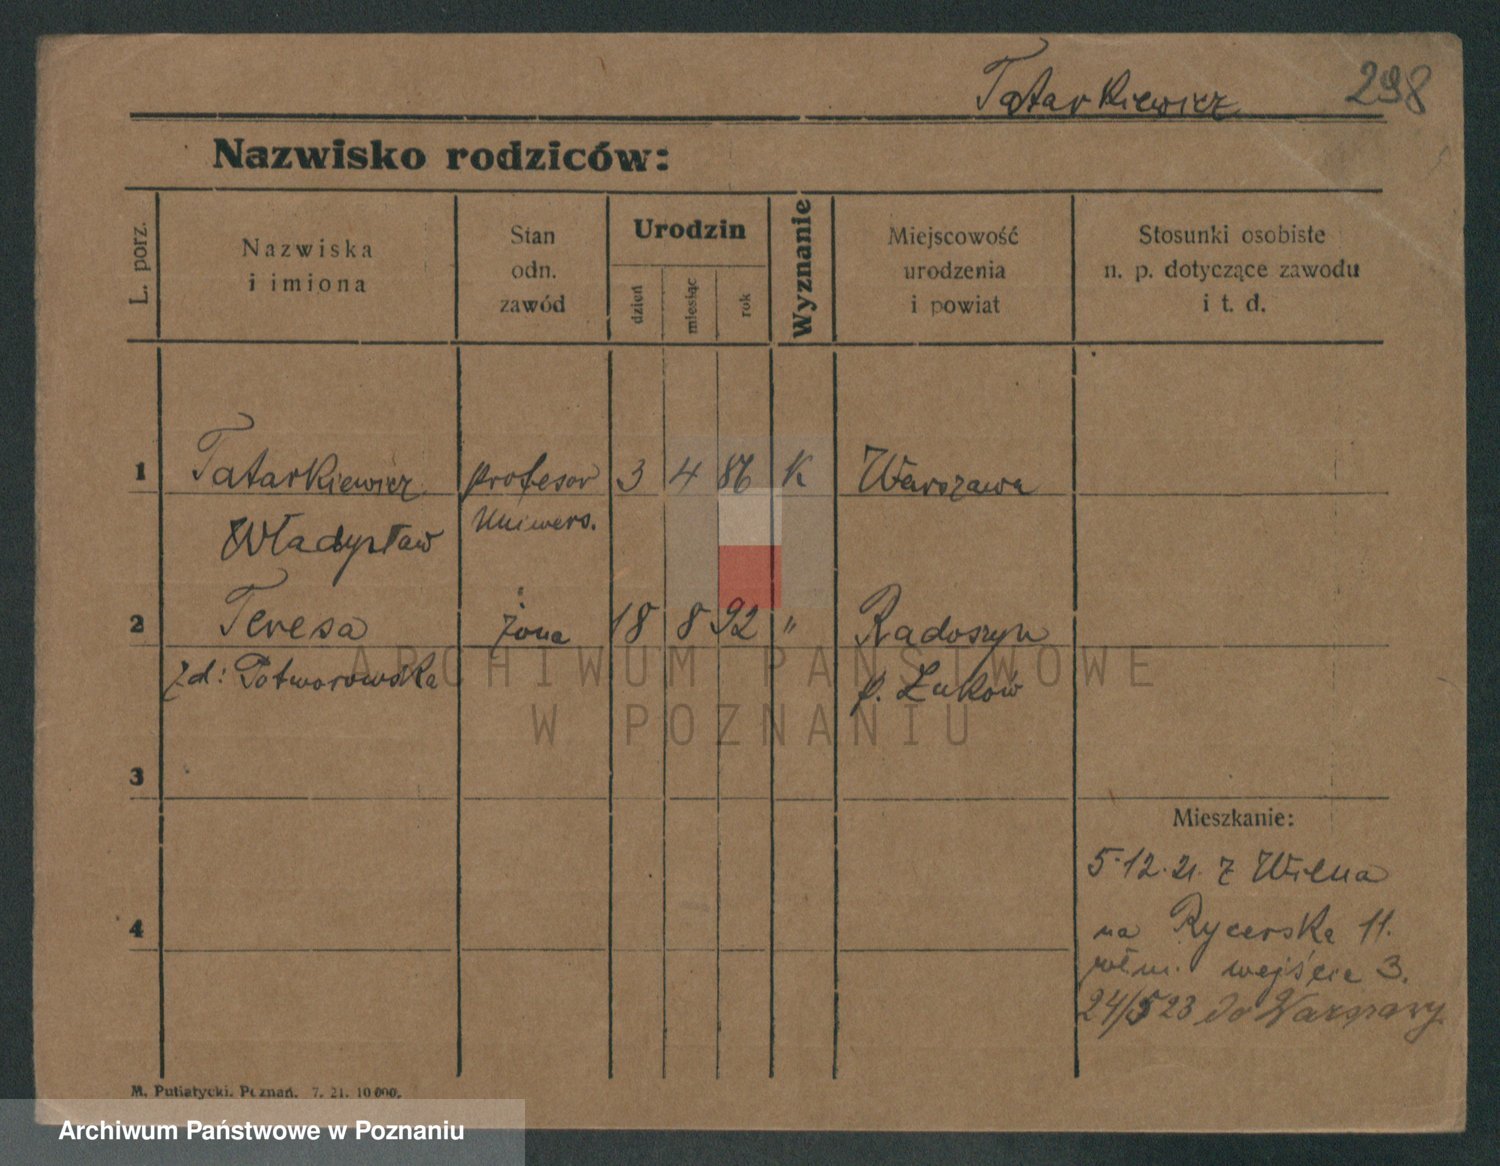 Tatarkiewicz 298
Nazwisko rodziców:
L. porz.
Nazwiska
i imiona
Stan
odn.
zawód
Urodzin
dzień
miesiąc
rok
Wyznanie
Miejscowość
urodzenia
i powiat
Stosunki osobiste
n. p. dotyczące zawodu
i t. d.
1 Tatarkiewicz profesor 3 4 86 K Warszawa
Władysław Uniwers.
2 Teresa żona 18 8 92 " Radoszyn
zd: Potworowska p. Łuków
ARCHIWUM PAŃSTWOWE
W POZNANIU
3
Mieszkanie:
5.12.21. z Wilna
4 na Rycerska 11.
wejście 3.
24/5 23 do Warszawy
M. Putiatycki. Poznań. 7. 21. 10 000.
Archiwum Państwowe w Poznaniu